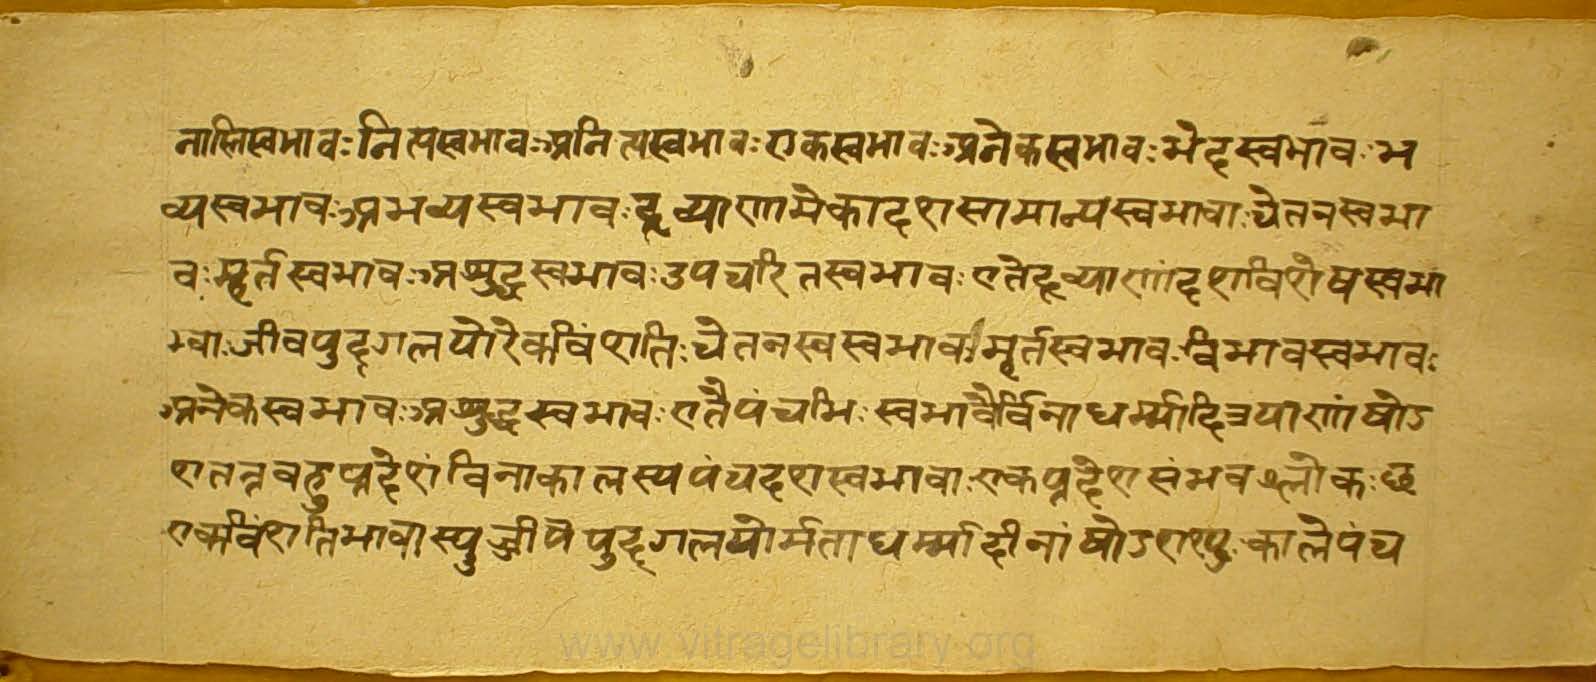 नास्तिस्वभावः नित्यस्वभावः अनित्यस्वभावः एकस्वभावः अनेकस्वभावः भेदस्वभावः भ
व्यस्वभावः अभव्यस्वभावः द्रव्याणामेकादशसामान्यस्वभावाः चेतनस्वभा
वः मूर्तस्वभावः अशुद्धस्वभावः उपचरितस्वभावः एतेद्रव्याणांदशविशेषस्वभा
वाः जीवपुद्गलयोरेकविंशतिः चेतनस्वस्वभावः मूर्तस्वभावः विभावस्वभावः
अनेकस्वभावः अशुद्धस्वभावः एतैपंचभिः स्वभावैर्विनाधर्म्मादित्रयाणांषोड
शतत्रबहुप्रदेशंविनाकालस्यपंचदशस्वभावाः एकप्रदेशसंभव श्लोकः छ
एकविंशतिभावास्युर्जीवपुद्गलयोर्मताधर्म्मादीनांषोडशस्युः कालेपंच
www.vitragelibrary.org